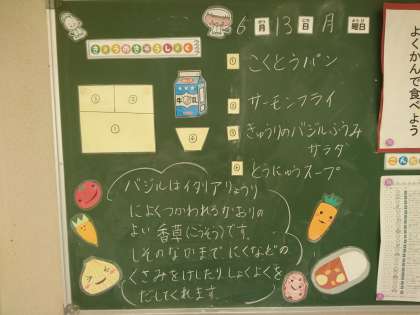 6月13日月曜日
きょうのきゅうしょく
① こくとうパン
② サーモンフライ
③ きゅうりのバジルふうみ
サラダ
④ とうにゅうスープ
③
②
①
④
牛乳
バジルはイタリアりょうり
によくつかわれるかおりの
よい香草(こうそう)です。
しそのなかまで にくなどの
くさみをけしたりしょくよくを
だしてくれます。
よくかんで食べよう